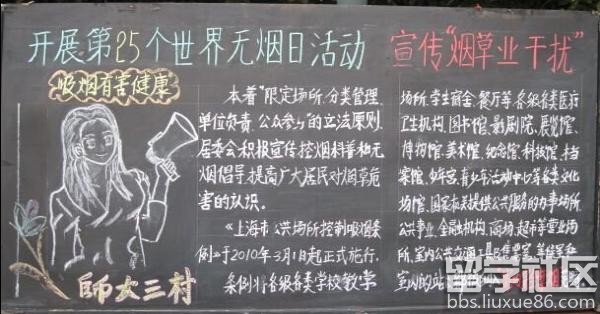 开展第25个世界无烟日活动
宣传"烟草业干扰"
吸烟有害健康
本着"限定场所、分类管理、
单位负责、公众参与"的立法原则,
居委会积极宣传控烟科普和无
烟倡导,提高广大居民对烟草危
害的认识。
《上海市公共场所控制吸烟条
例》于2010年3月1日起正式施行,
条例将各级各类学校教学
師大三村
场所、学生宿舍、餐厅等,各级各类医疗
卫生机构、图书馆、影剧院、展览馆、
博物馆、美术馆、纪念馆、科技馆、档
案馆、少年宫、青少年活动中心等各类文化
场馆、国家机关提供公共服务的办事场所、
公共事业、金融机构、商场、超市等营业场
所,室内公共交通
室内的站
留学社区
bbs.liuxue86.com